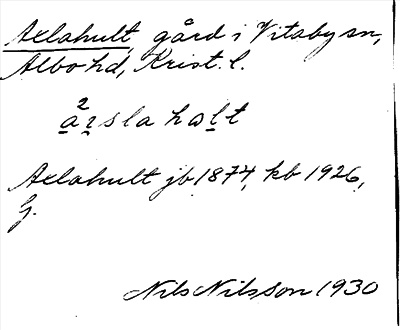 Axlahult, gård i Vitaby sn,
Albo hd, Krist. l.
Axlahult jb 1874, kb 1926,
Nils Nilsson 1930